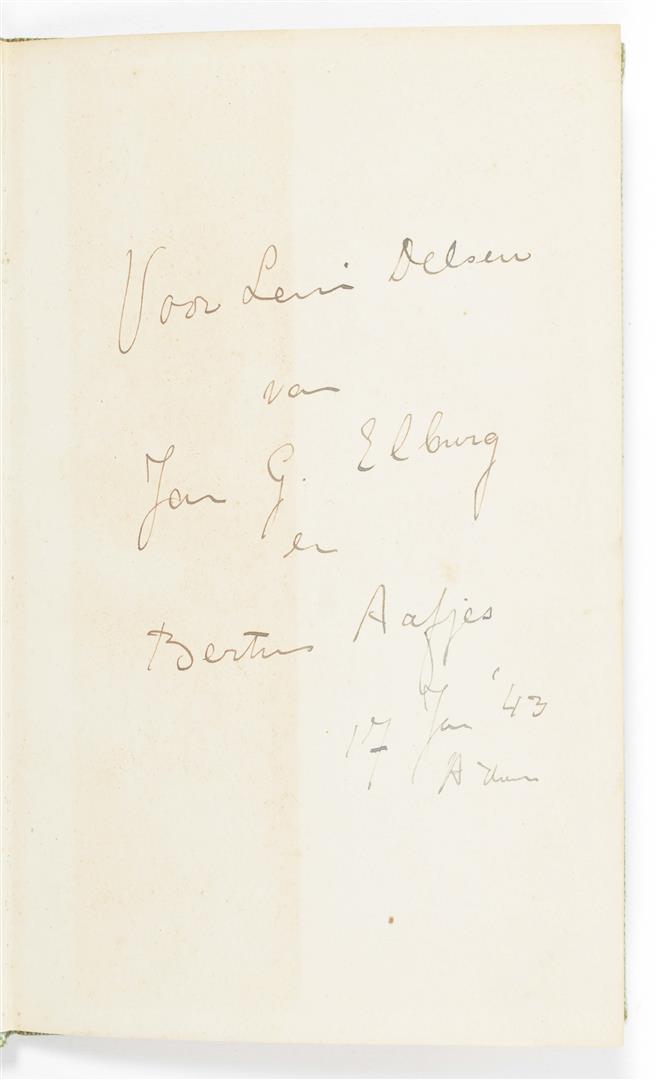 Voor Leni Delsen
van
Jan G. Elburg
en
Bertus Aafjes
17 Jan '43
A'dam